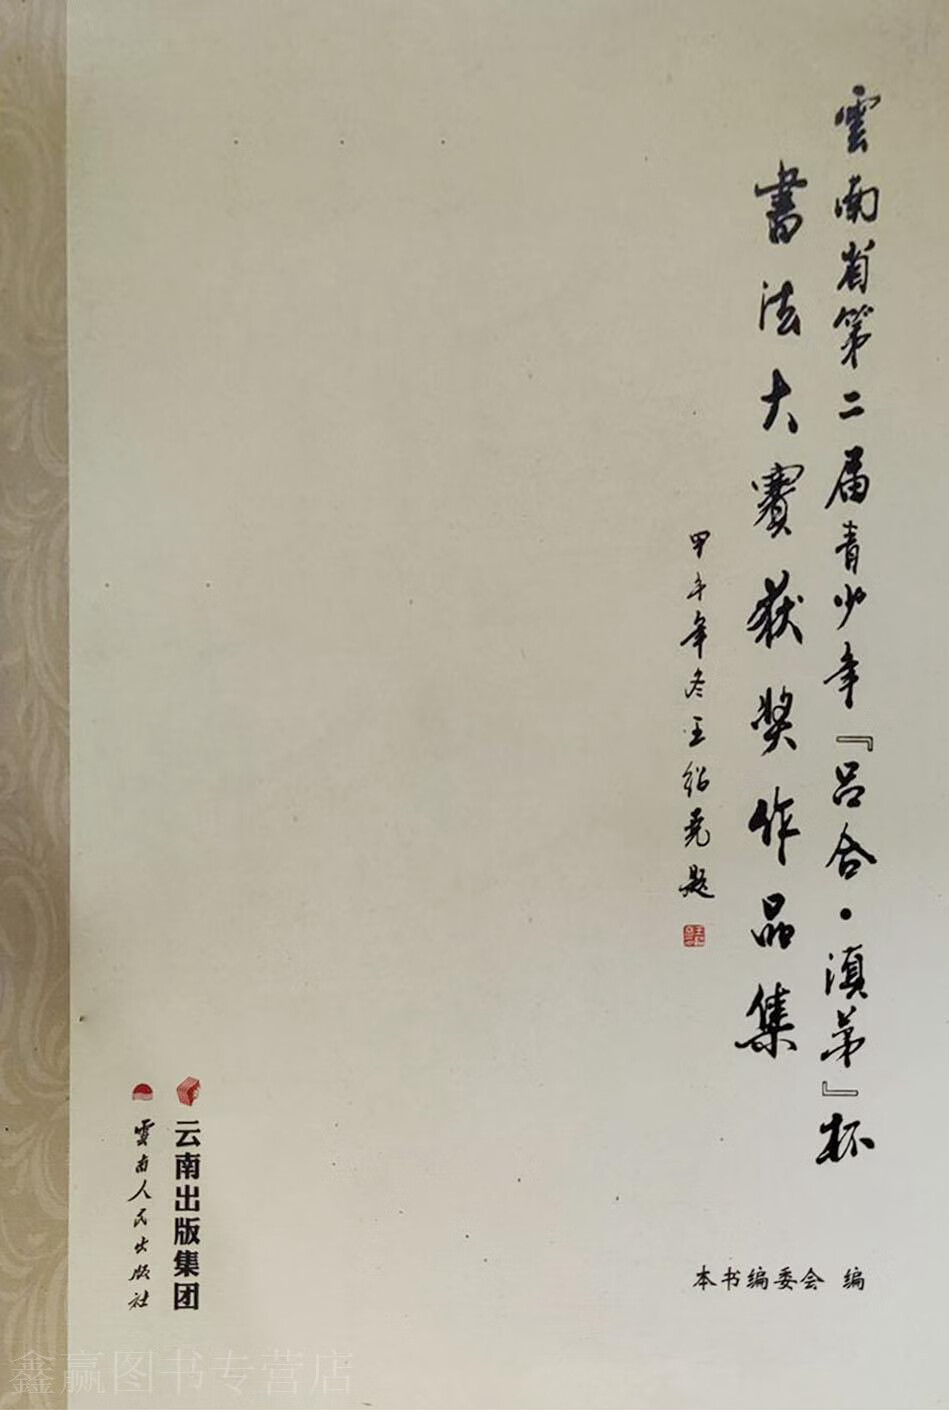 雲南省第二届青少年『吕合·滇弟』杯
書法大賽获奖作品集
甲午年冬王绍尧题
本书编委会 编
云南出版集团
雲南人民出版社
鑫赢图书专营店